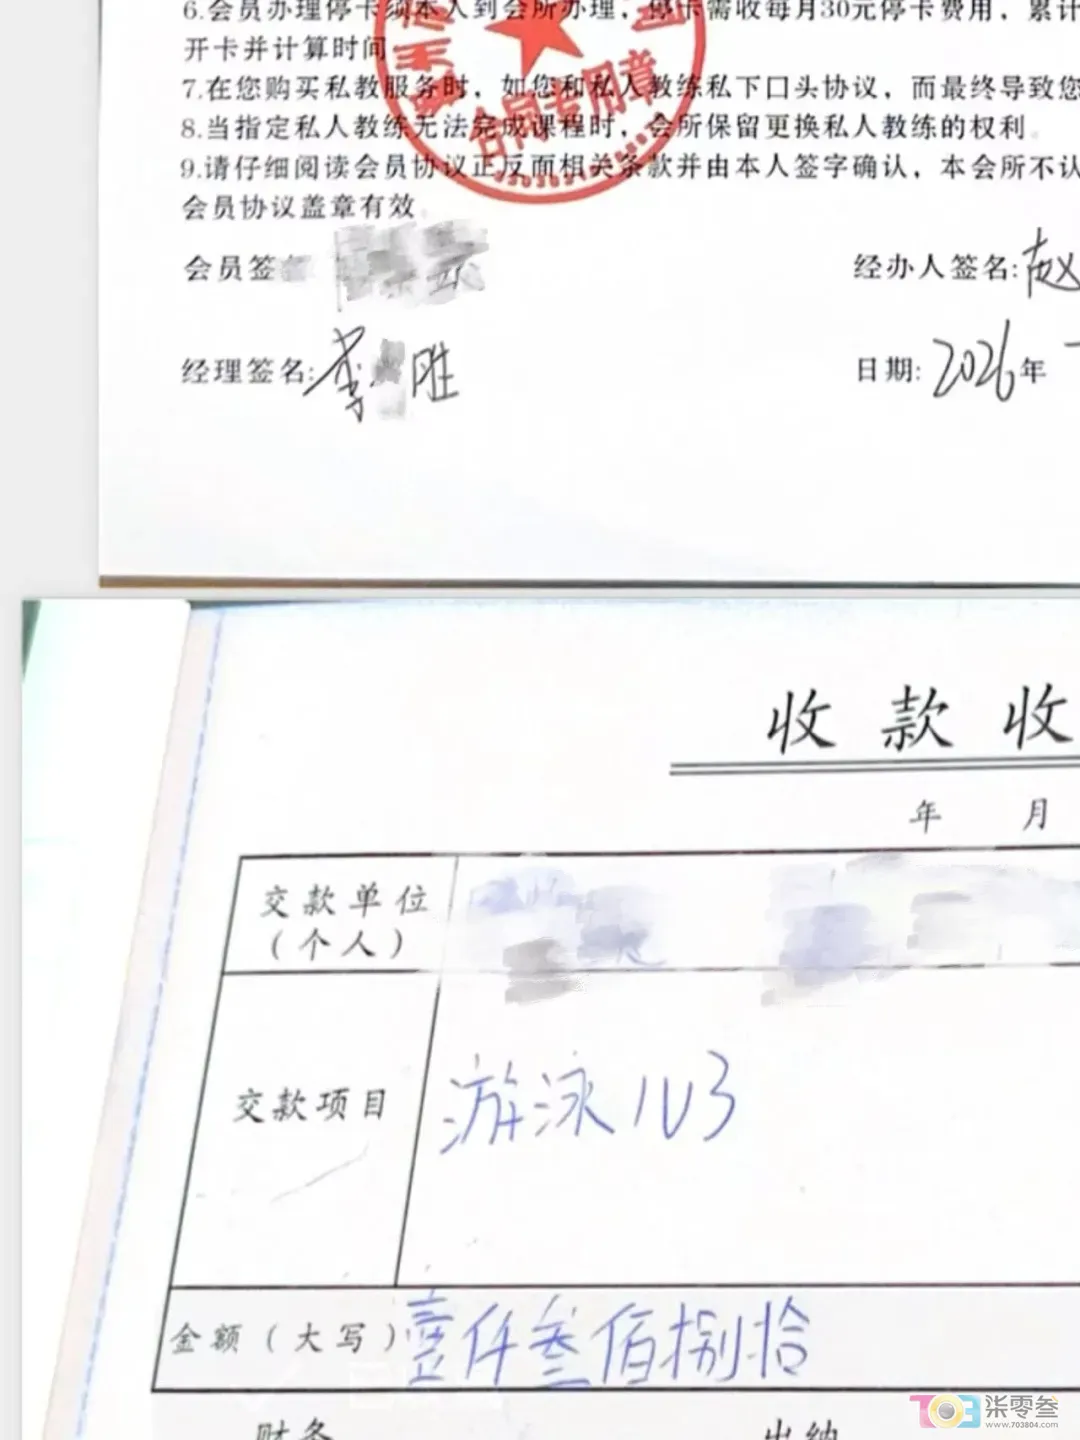 6.会员办理停卡须本人到会所办理，停卡需收每月30元停卡费用，累计
开卡并计算时间
7.在您购买私教服务时，如您和私人教练私下口头协议，而最终导致您
8.当指定私人教练无法完成课程时，会所保留更换私人教练的权利。
9.请仔细阅读会员协议正反面相关条款并由本人签字确认，本会所不认
会员协议盖章有效。
合同专用章
会员签
经办人签名:赵
经理签名:李 胜
日期:2026年
收款收
年 月
交款单位
（个人）
交款项目
游泳1V3
金额（大写）壹仟叁佰捌拾
财务
出纳
703 柒零叁
www.703804.com